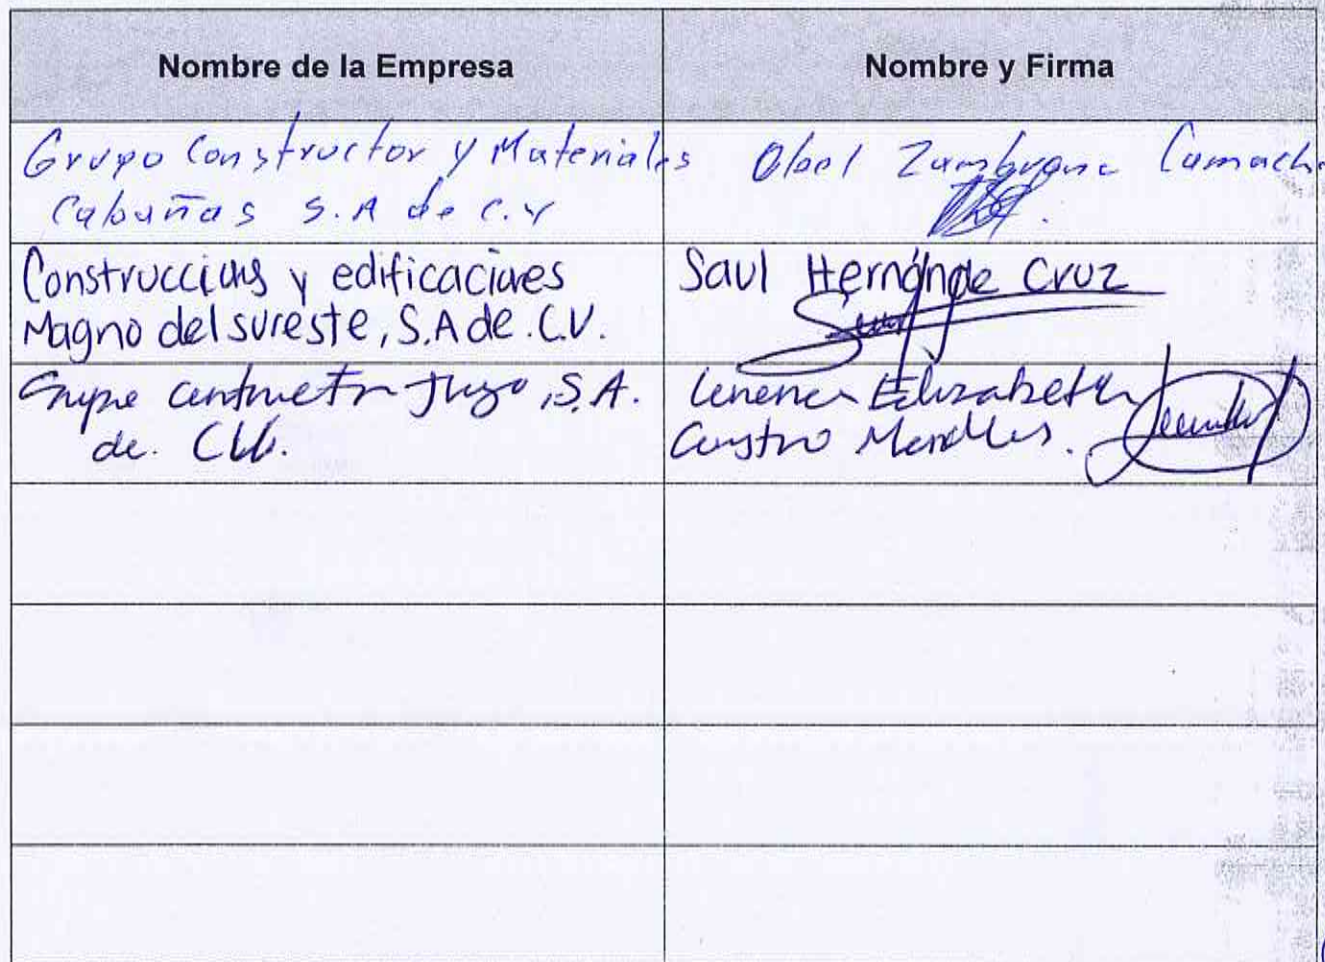 Nombre de la Empresa
Nombre y Firma
Grupo Constructor y Materiales
Cabañas S.A de C.V
Obel Zambrano Camacho
Construcciones y edificaciones
Magno del sureste, S.A de C.V.
Saul Hernánde Cruz
S.A.
de. C.V.
Elizabeth
Castro